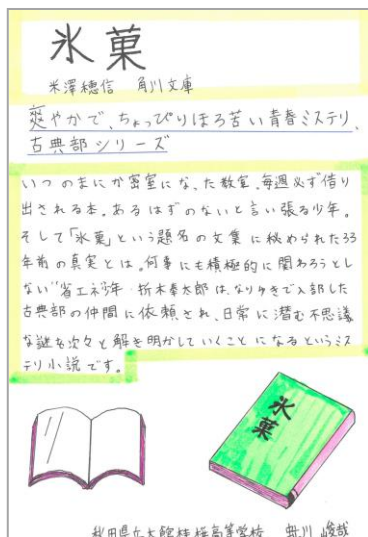 氷菓
米澤穂信 角川文庫
爽やかで、ちょっぴりほろ苦い青春ミステリ、
古典部シリーズ
いつのまにか密室になった教室。毎週必ず借り
出される本。あるはずのないと言い張る少年。
そして「氷菓」という題名の文集に秘められた33
年前の真実とは。何事にも積極的に関わろうとし
ない"省エネ"少年・折木奉太郎は、なりゆきで入部した
古典部の仲間に依頼され、日常に潜む不思議
な謎を次々と解き明かしていくことになるというミス
テリ小説です。
氷菓
秋田県立大館桂桜高等学校 川 峻哉